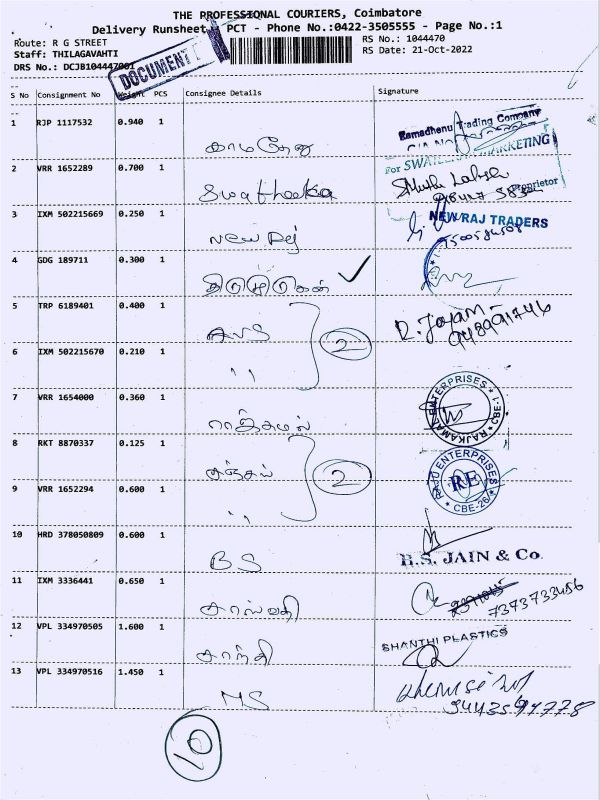 THE PROFESSIONAL COURIERS, Coimbatore
Delivery Runsheet PCT - Phone No.:0422-3505555 - Page No.:1
Route: R G STREET RS No.: 1044470
Staff: THILAGAVAHTI RS Date: 21-Oct-2022
DRS No.: DCJB104447001
DOCUMENT
S No Consignment No Weight PCS Consignee Details Signature
1 RJP 1117532 0.940 1 காமதேனு Kamadhenu Trading Company
2 VRR 1652289 0.700 1 Swathecka For SWATHEEKA MARKETING
Proprietor
3 IXM 502215669 0.250 1 New Raj NEW RAJ TRADERS
4 GDG 189711 0.300 1
5 TRP 6189401 0.400 1 AVS R. Jayam
9489991746
2
6 IXM 502215670 0.210 1 ,,
7 VRR 1654000 0.360 1 ராஜ்கமல் RAJKAMAL ENTERPRISES CBE-1
8 RKT 8870337 0.125 1 RAJU ENTERPRISES RE CBE-26
2
9 VRR 1652294 0.600 1 ,,
10 HRD 378050809 0.600 1 BS B.S. JAIN & Co.
11 IXM 3336441 0.650 1 சரஸ்வதி 7373733456
12 VPL 334970505 1.600 1 சாந்தி SHANTHI PLASTICS
13 VPL 334970516 1.450 1 MS
10